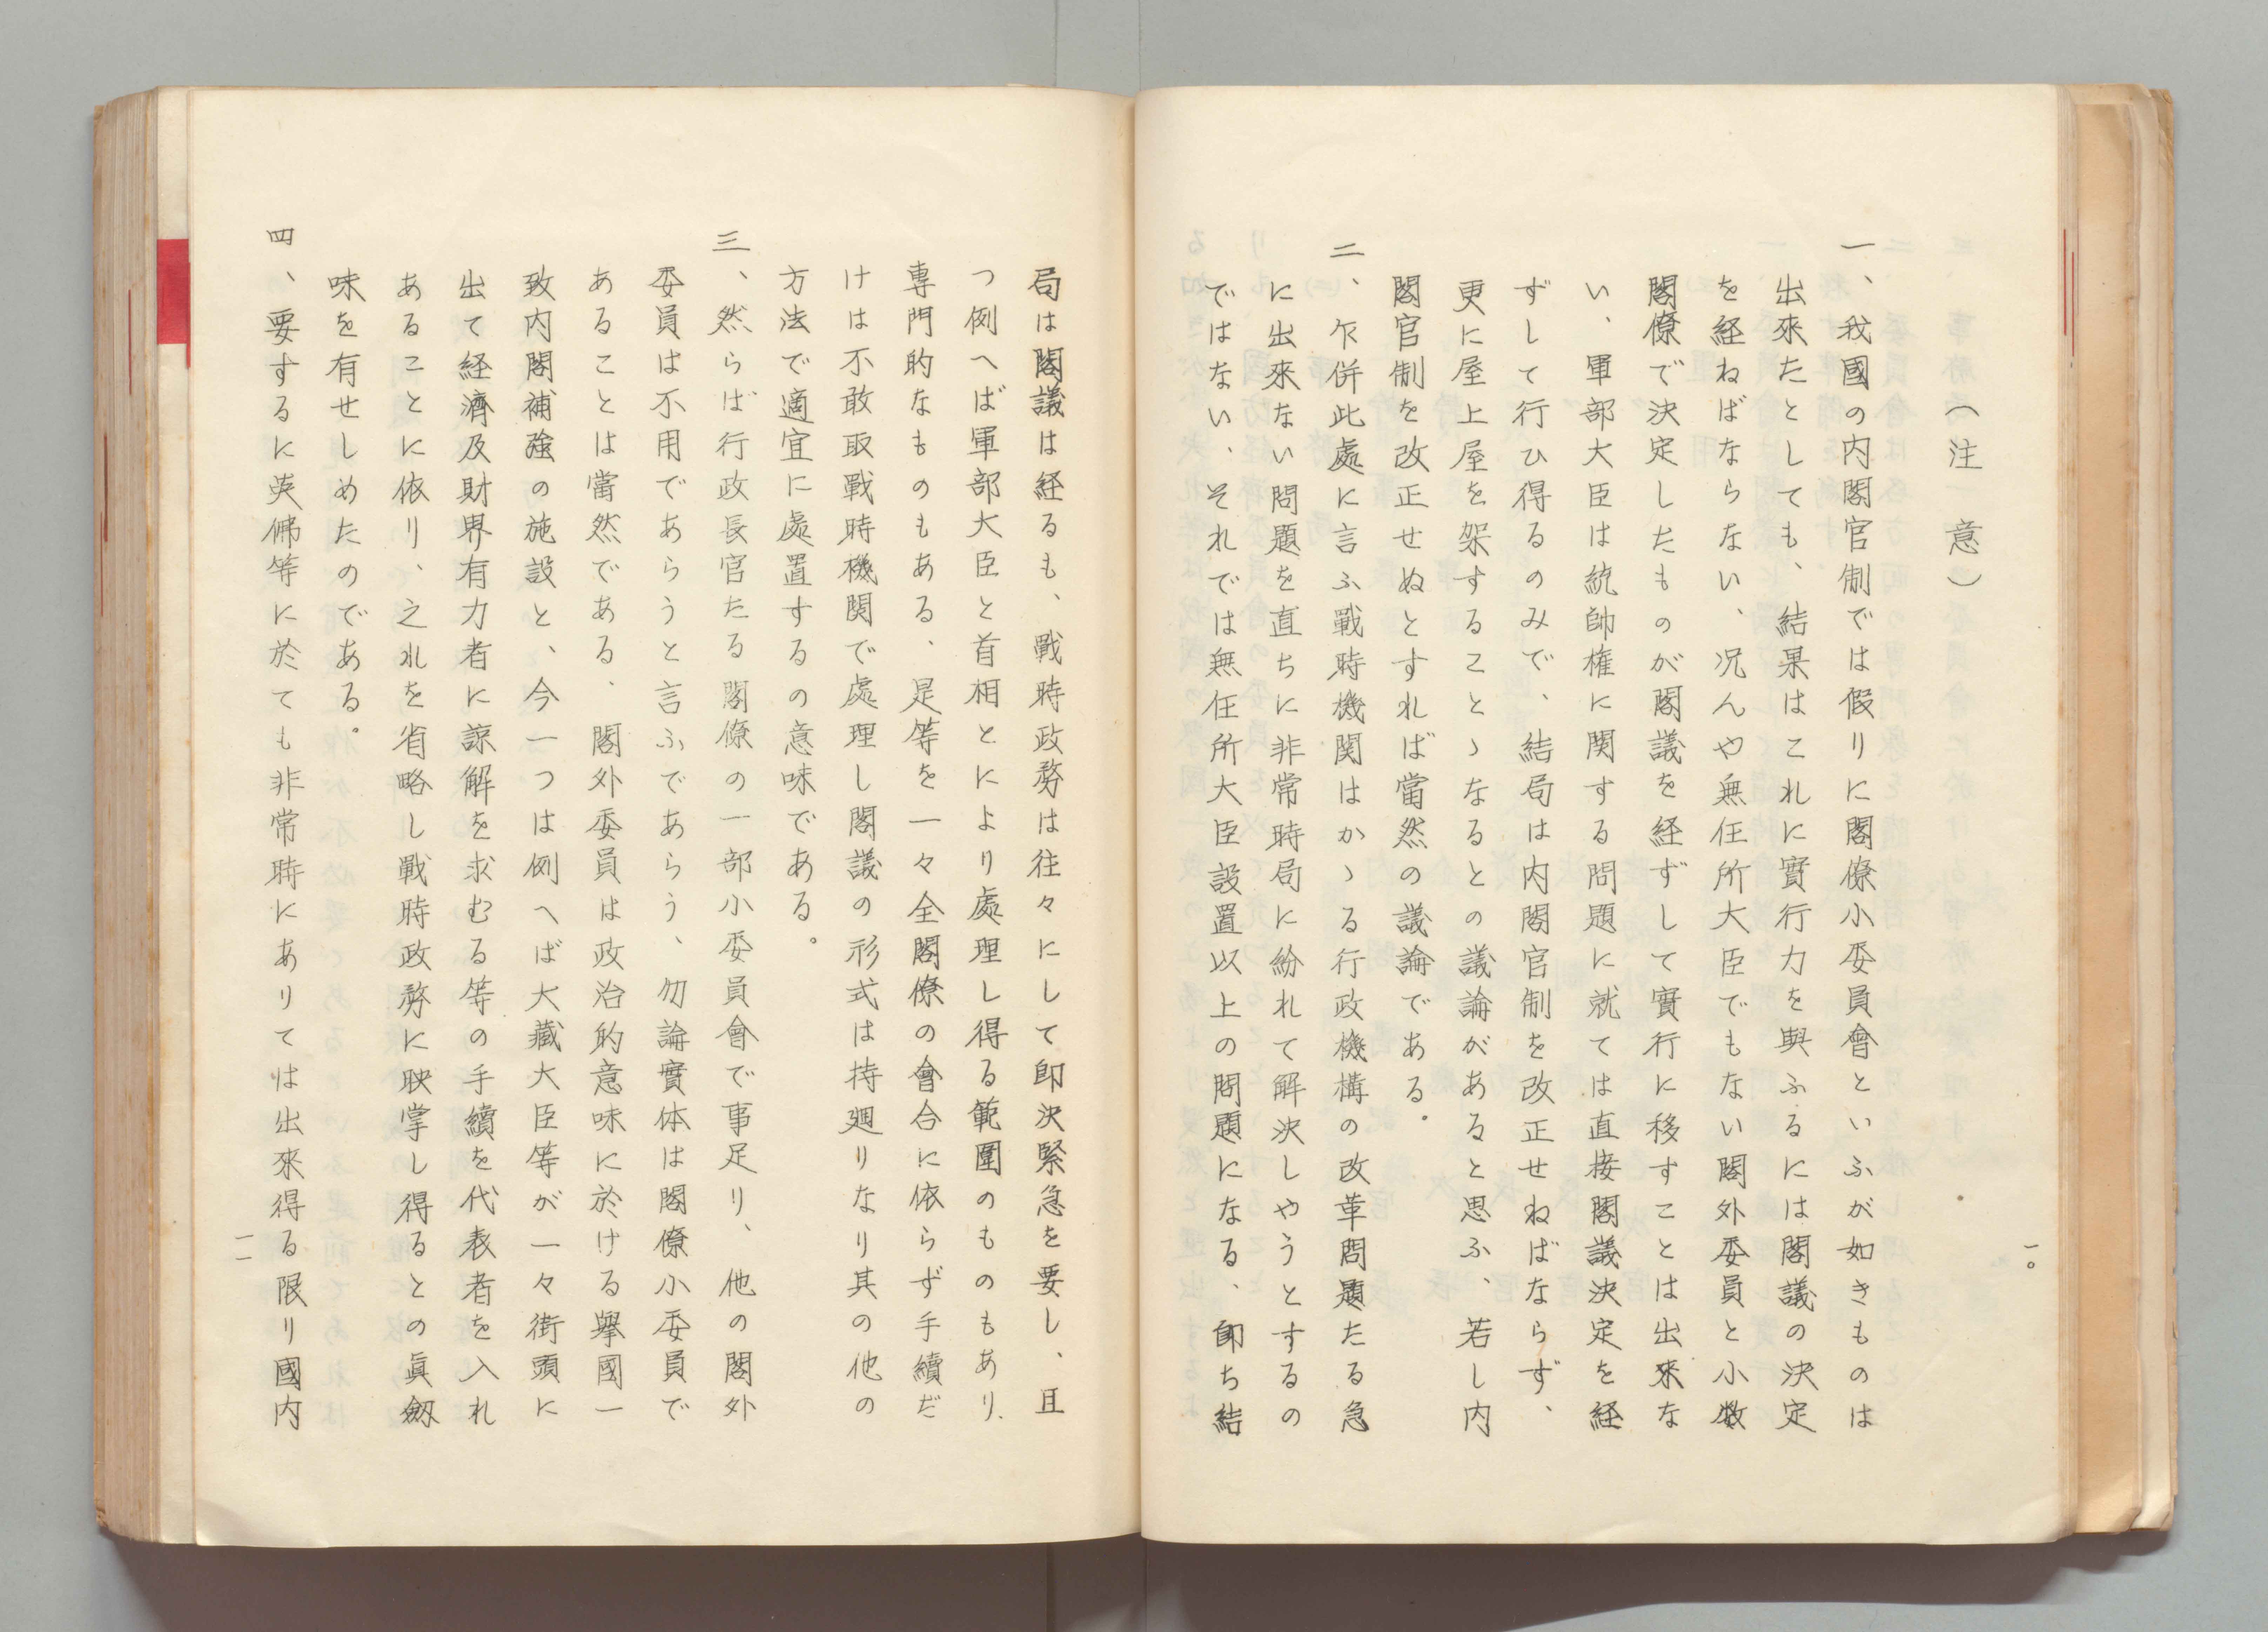 （注意）
一、我國の内閣官制では假りに閣僚小委員會といふが如きものは
出來たとしても、結果はこれに實行力を與ふるには閣議の決定
を経ねばならない、况んや無任所大臣でもない閣外委員と小数
閣僚で決定したものが閣議を経ずして實行に移すことは出來な
い、軍部大臣は統帥権に関する問題に就ては直接閣議決定を経
ずして行ひ得るのみで、結局は内閣官制を改正せねばならず、
更に屋上屋を架することゝなるとの議論があると思ふ、若し内
閣官制を改正せぬとすれば當然の議論である。
二、乍併此處に言ふ戰時機関はかゝる行政機構の改革問題たる急
に出來ない問題を直ちに非常時局に紛れて解決しやうとするの
ではない、それでは無任所大臣設置以上の問題になる、即ち結
一〇
局は閣議は経るも、戰時政務は往々にして即決緊急を要し、且
つ例へば軍部大臣と首相とにより處理し得る範圍のものもあり、
専門的なものもある、是等を一々全閣僚の會合に依らず手續だ
けは不敢取戰時機関で處理し閣議の形式は持廻りなり其の他の
方法で適宜に處置するの意味である。
三、然らば行政長官たる閣僚の一部小委員會で事足り、他の閣外
委員は不用であらうと言ふであらう、勿論實体は閣僚小委員で
あることは當然である、閣外委員は政治的意味に於ける擧國一
致内閣補強の施設と、今一つは例へば大藏大臣等が一々街頭に
出て経濟及財界有力者に諒解を求むる等の手續を代表者を入れ
あることに依り、之れを省略し戰時政務に映掌し得るとの眞劔
味を有せしめたのである。
四、要するに英佛等に於ても非常時にありては出來得る限り國内
一一